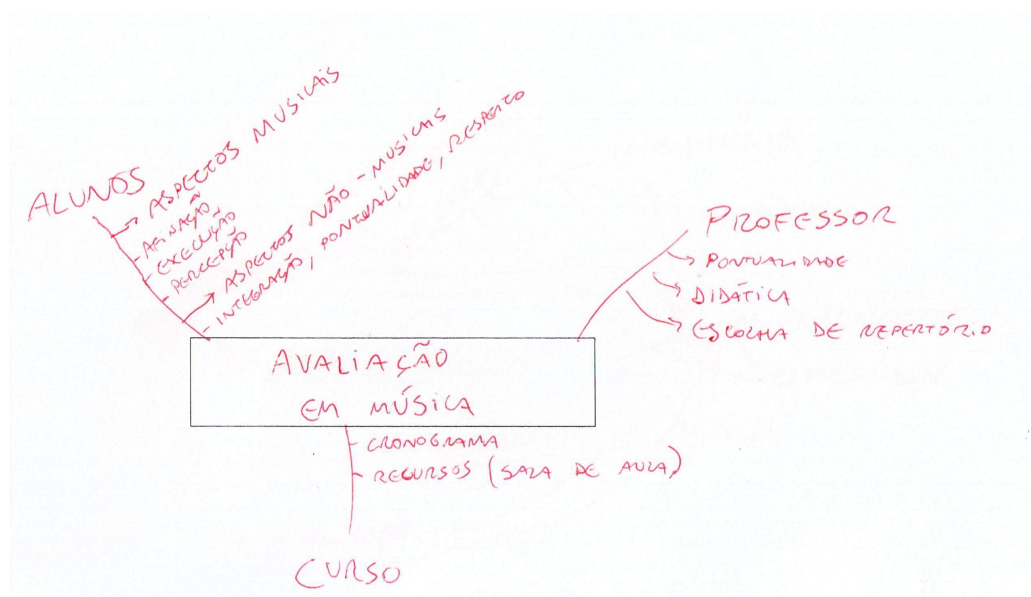 ALUNOS
→ ASPECTOS MUSICAIS
- AFINAÇÃO
- EXECUÇÃO
- PERCEPÇÃO
→ ASPECTOS NÃO-MUSICAIS
- INTEGRAÇÃO, PONTUALIDADE, RESPEITO
PROFESSOR
→ PONTUALIDADE
→ DIDÁTICA
→ ESCOLHA DE REPERTÓRIO
AVALIAÇÃO
EM MÚSICA
- CRONOGRAMA
- RECURSOS (SALA DE AULA)
CURSO